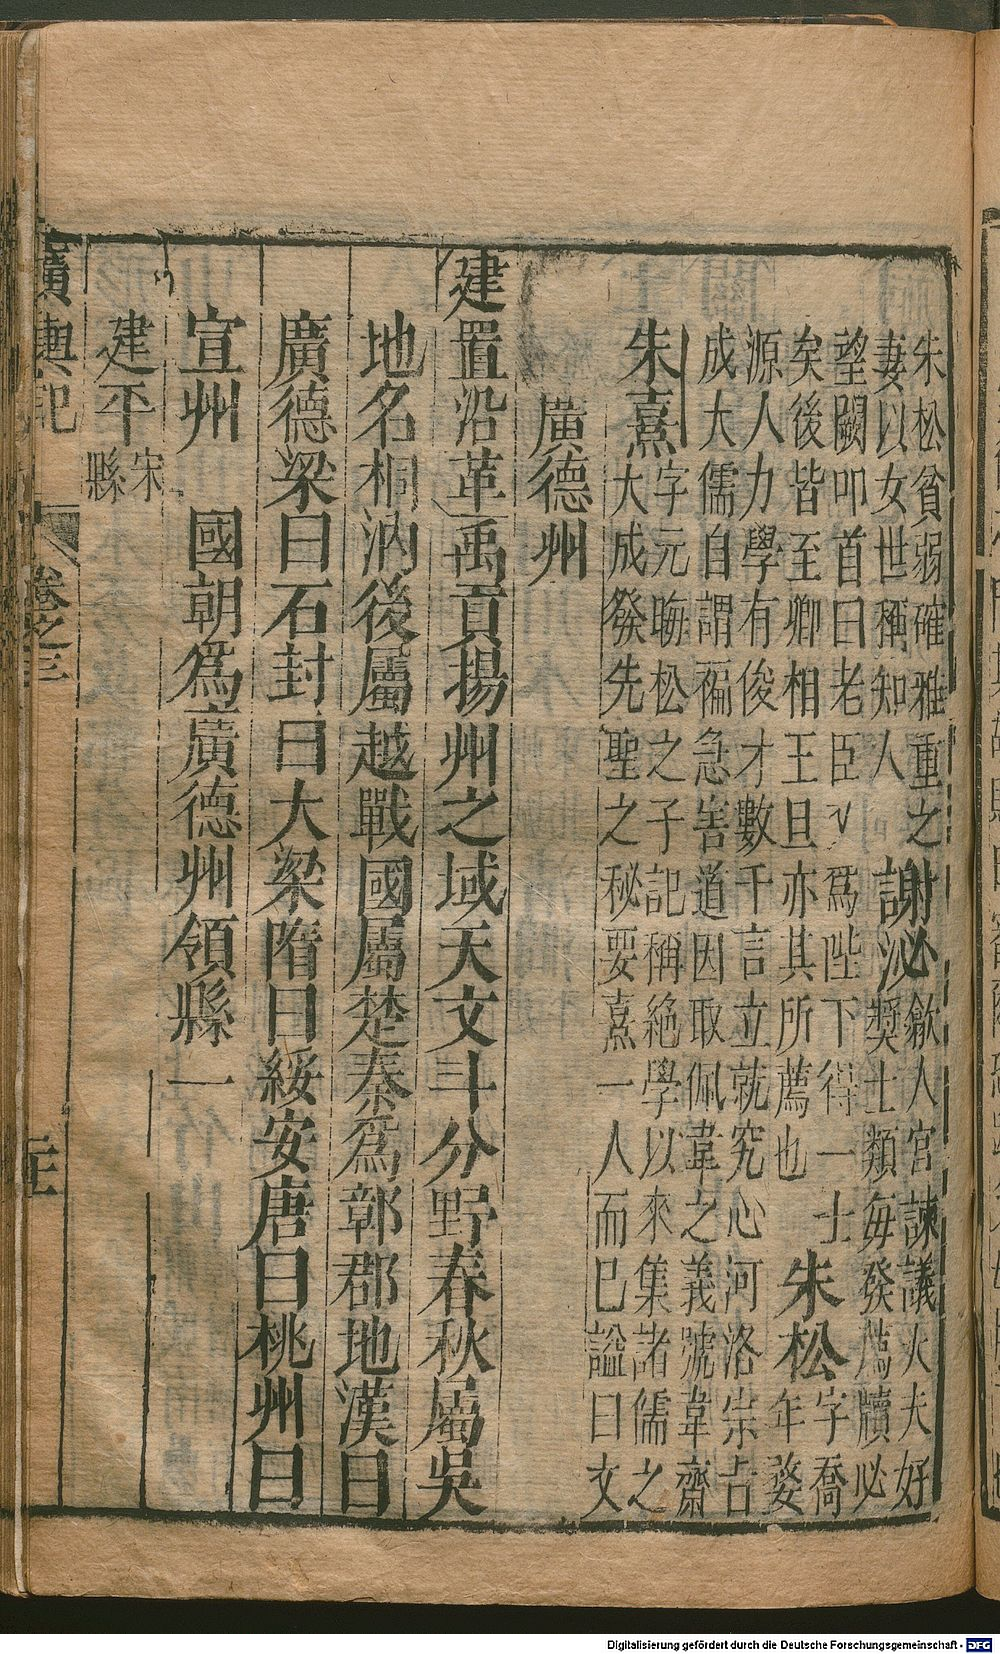 朱松貧弱確雅重之
妻以女世稱知人
謝泌
歙人官諫議大夫好
奬士類每發薦牘必
望闕叩首曰老臣又爲陛下得一士
矣後皆至卿相王旦亦其所薦也
朱松
字喬
年婺
源人力學有俊才數千言立就究心河洛宗占
成大儒自謂褊急害道因取佩韋之義號韋齋
朱熹
字元晦松之子記稱絶學以來集諸儒之
大成發先聖之秘要熹一人而已諡曰文
廣德州
建置沿革禹貢揚州之域天文斗分野春秋屬吳
地名桐汭後屬越戰國屬楚秦爲鄣郡地漢曰
廣德梁曰石封曰大梁隋曰綏安唐曰桃州曰
宣州 國朝爲廣德州領縣一
建平
宋
縣
廣輿記 卷之三
Digitalisierung gefördert durch die Deutsche Forschungsgemeinschaft - DFG